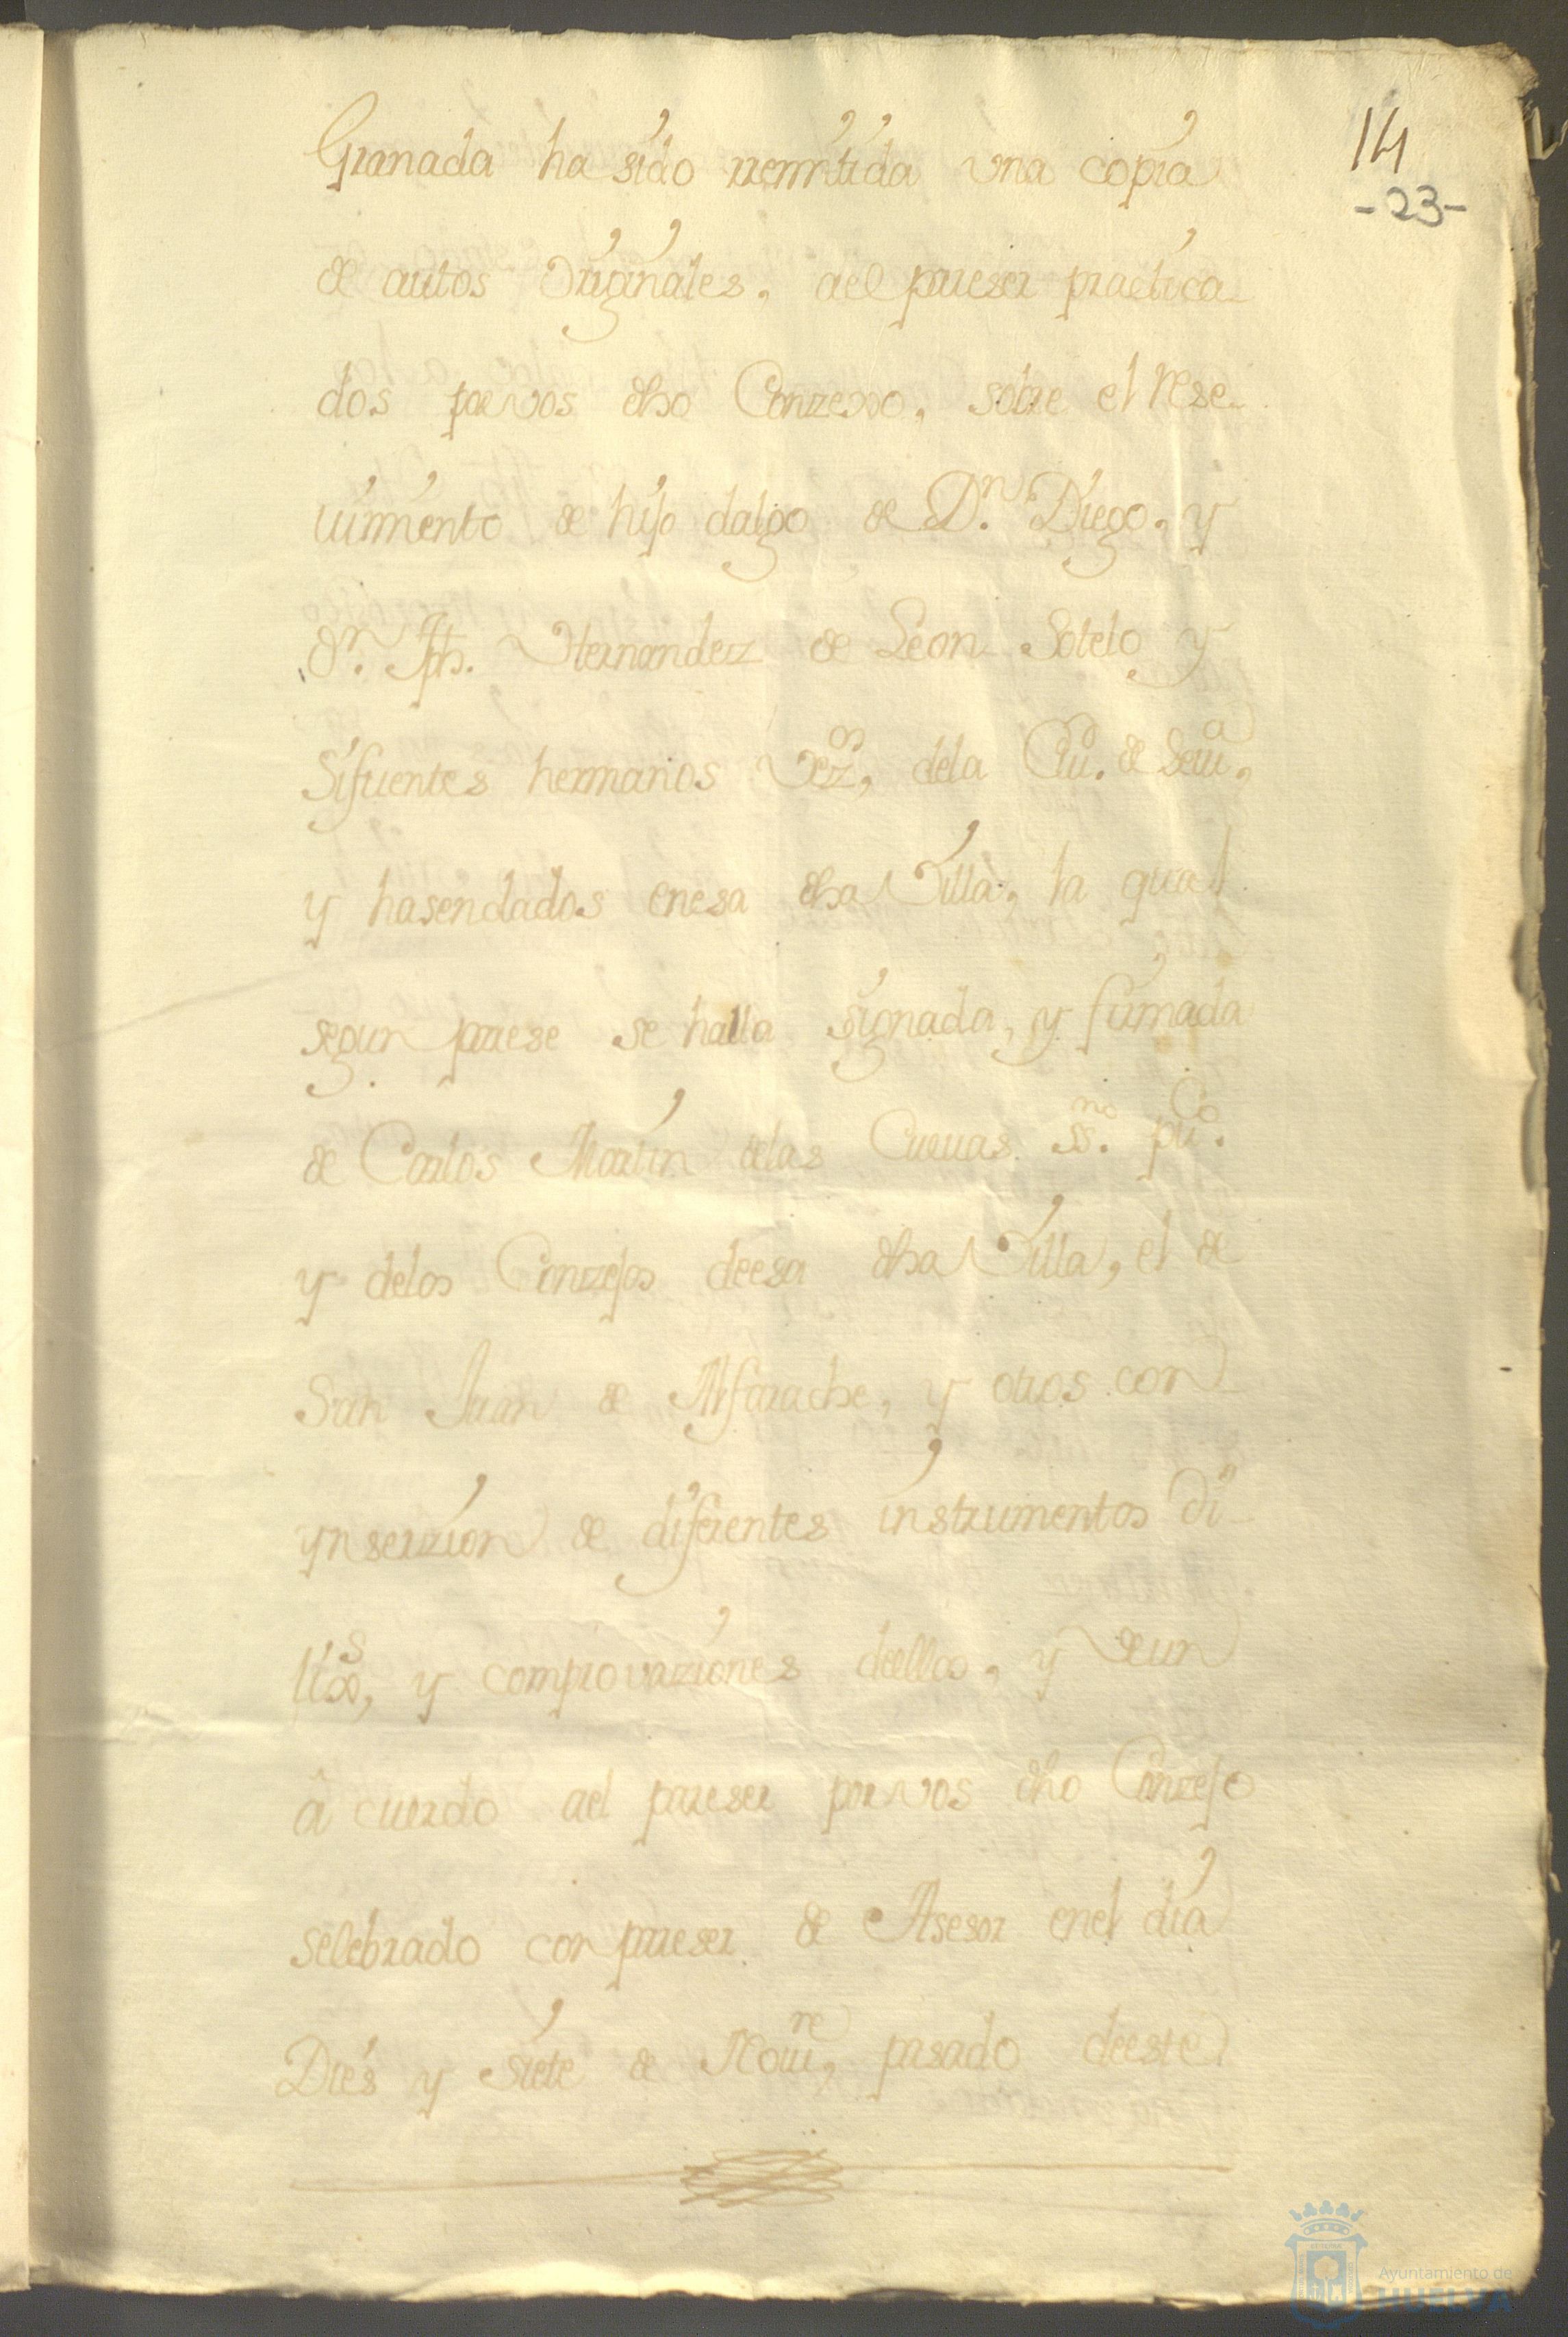 14
-23-
Granada ha sido rremitida vna copia
de autos Originales, ael pareser practica-
dos por vos dho Conzexo, sobre el Rese-
uimiento de hijo dalgo de Dn. Diego, y
Dn. Jph. Hernandez de Leon Sotelo y
Sifuentes hermanos Vezos, dela Ciud. de Seuia,
y hasendados enesa dha Villa, la qual
segun parese se halla signada, y firmada
de Carlos Martin delas Cueuas ssno. puco.
y delos Conzejos deesa dha Villa, el de
San Juan de Alfarache, y otros con
ynserzion de diferentes instrumentos di-
y comprovaziones deellos, y de un
â cuerdo ael pareser por vos dho Conzejo
selebrado con pareser de Asesor enel dia
Dies y siete de Nouire, pasado deeste
Ayuntamiento de
HUELVA